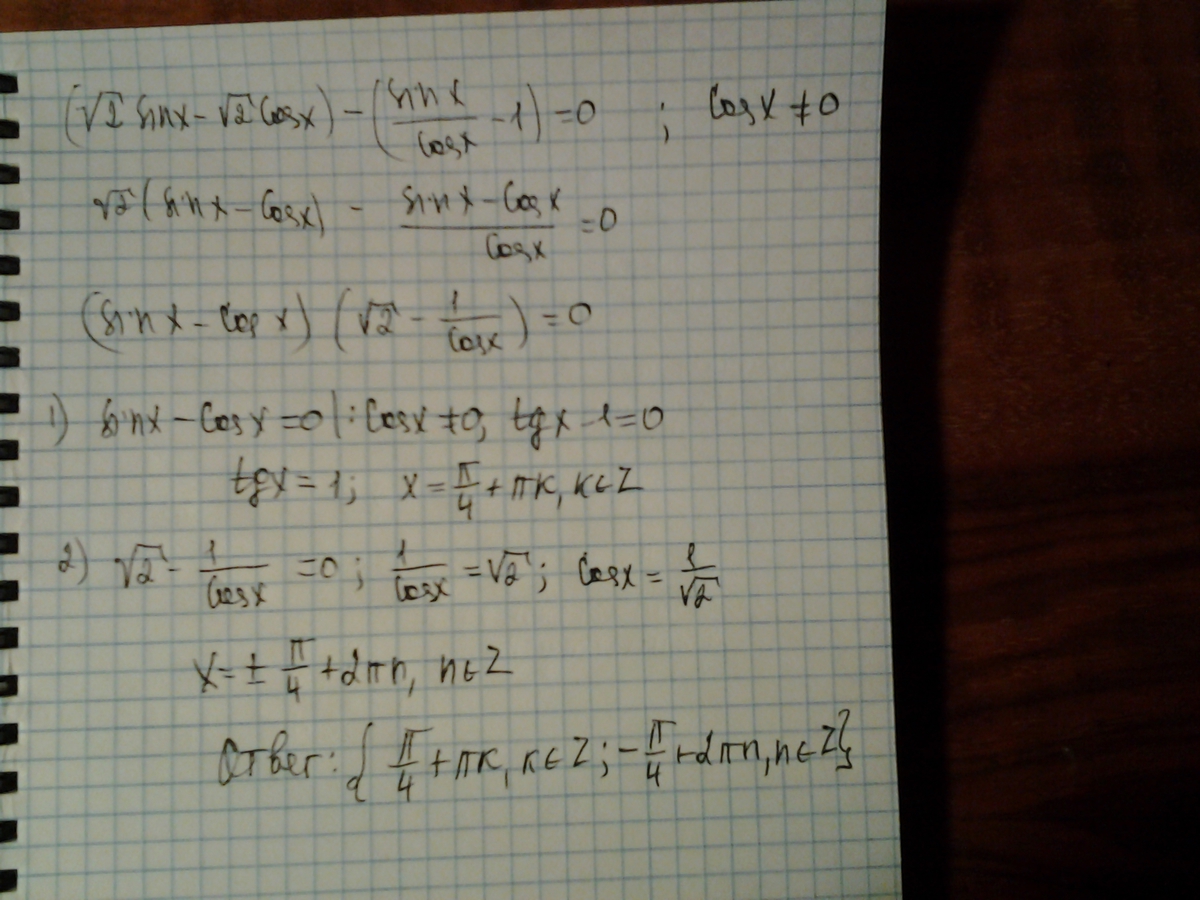 (√2 sinx - √2 cosx) - (sin x / cosx - 1) = 0 ; cosx ≠ 0
√2 (sin x - cosx) - (sin x - cos x) / cosx = 0
(sin x - cos x) (√2 - 1/cosx) = 0
1) sinx - cosx = 0 |: cosx ≠ 0, tgx - 1 = 0
tgx = 1; x = π/4 + πк, к ∈ Z
2) √2 - 1/cosx = 0 ; 1/cosx = √2 ; cosx = 1/√2
x = ± π/4 + 2πn, n ∈ Z
Ответ: { π/4 + πк, к ∈ Z ; - π/4 + 2πn, n ∈ Z }